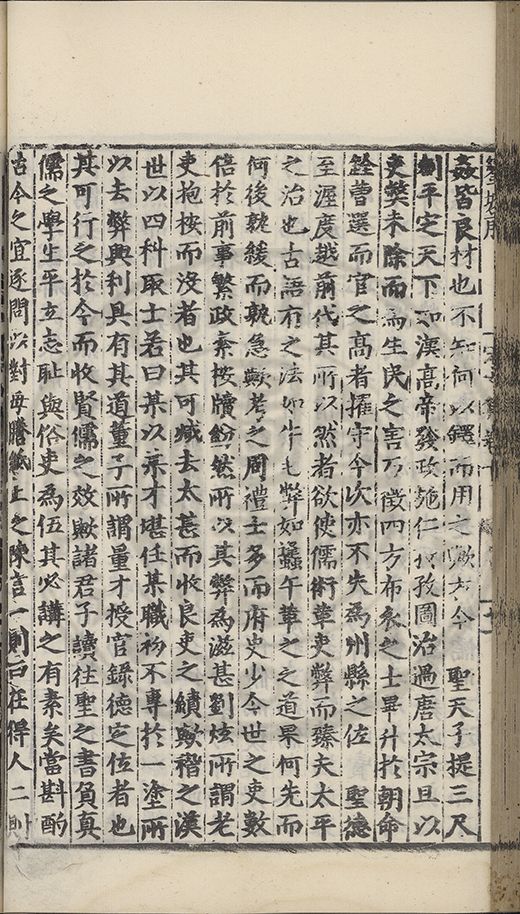 姦皆良材也不知何以鐸而用之歟方今　聖天子提三尺
劍平定天下如漢高帝發政施仁孜孜圖治過唐太宗旦以
吏獘未除而爲生民之害乃徵四方布衣之士畢升於朝命
銓曹選而官之高者擢守令次亦不失爲州縣之佐　聖德
至渥度越前代其所以然者欲使儒術革吏弊而臻夫太平
之治也古語有之法如牛毛弊如蝟午革之之道果何先而
何後孰緩而孰急歟考之周禮士多而府史少今世之吏數
倍於前事繁政紊按牘紛然所以其弊爲滋甚劉炫所謂老
吏抱桉而沒者也其可減去太甚而收良吏之績歟稽之漢
世以四科取士若曰某以某才堪任某職初不專於一塗所
以去弊興利具有其道董子所謂量才授官錄德定位者也
其可行之於今而收賢儒之效歟諸君子讀往聖之書負真
儒之學生平立志恥與俗吏爲伍其必講之有素矣當斟酌
古今之宜逐問以對毋謄紙上之陳言一則曰在得人二則